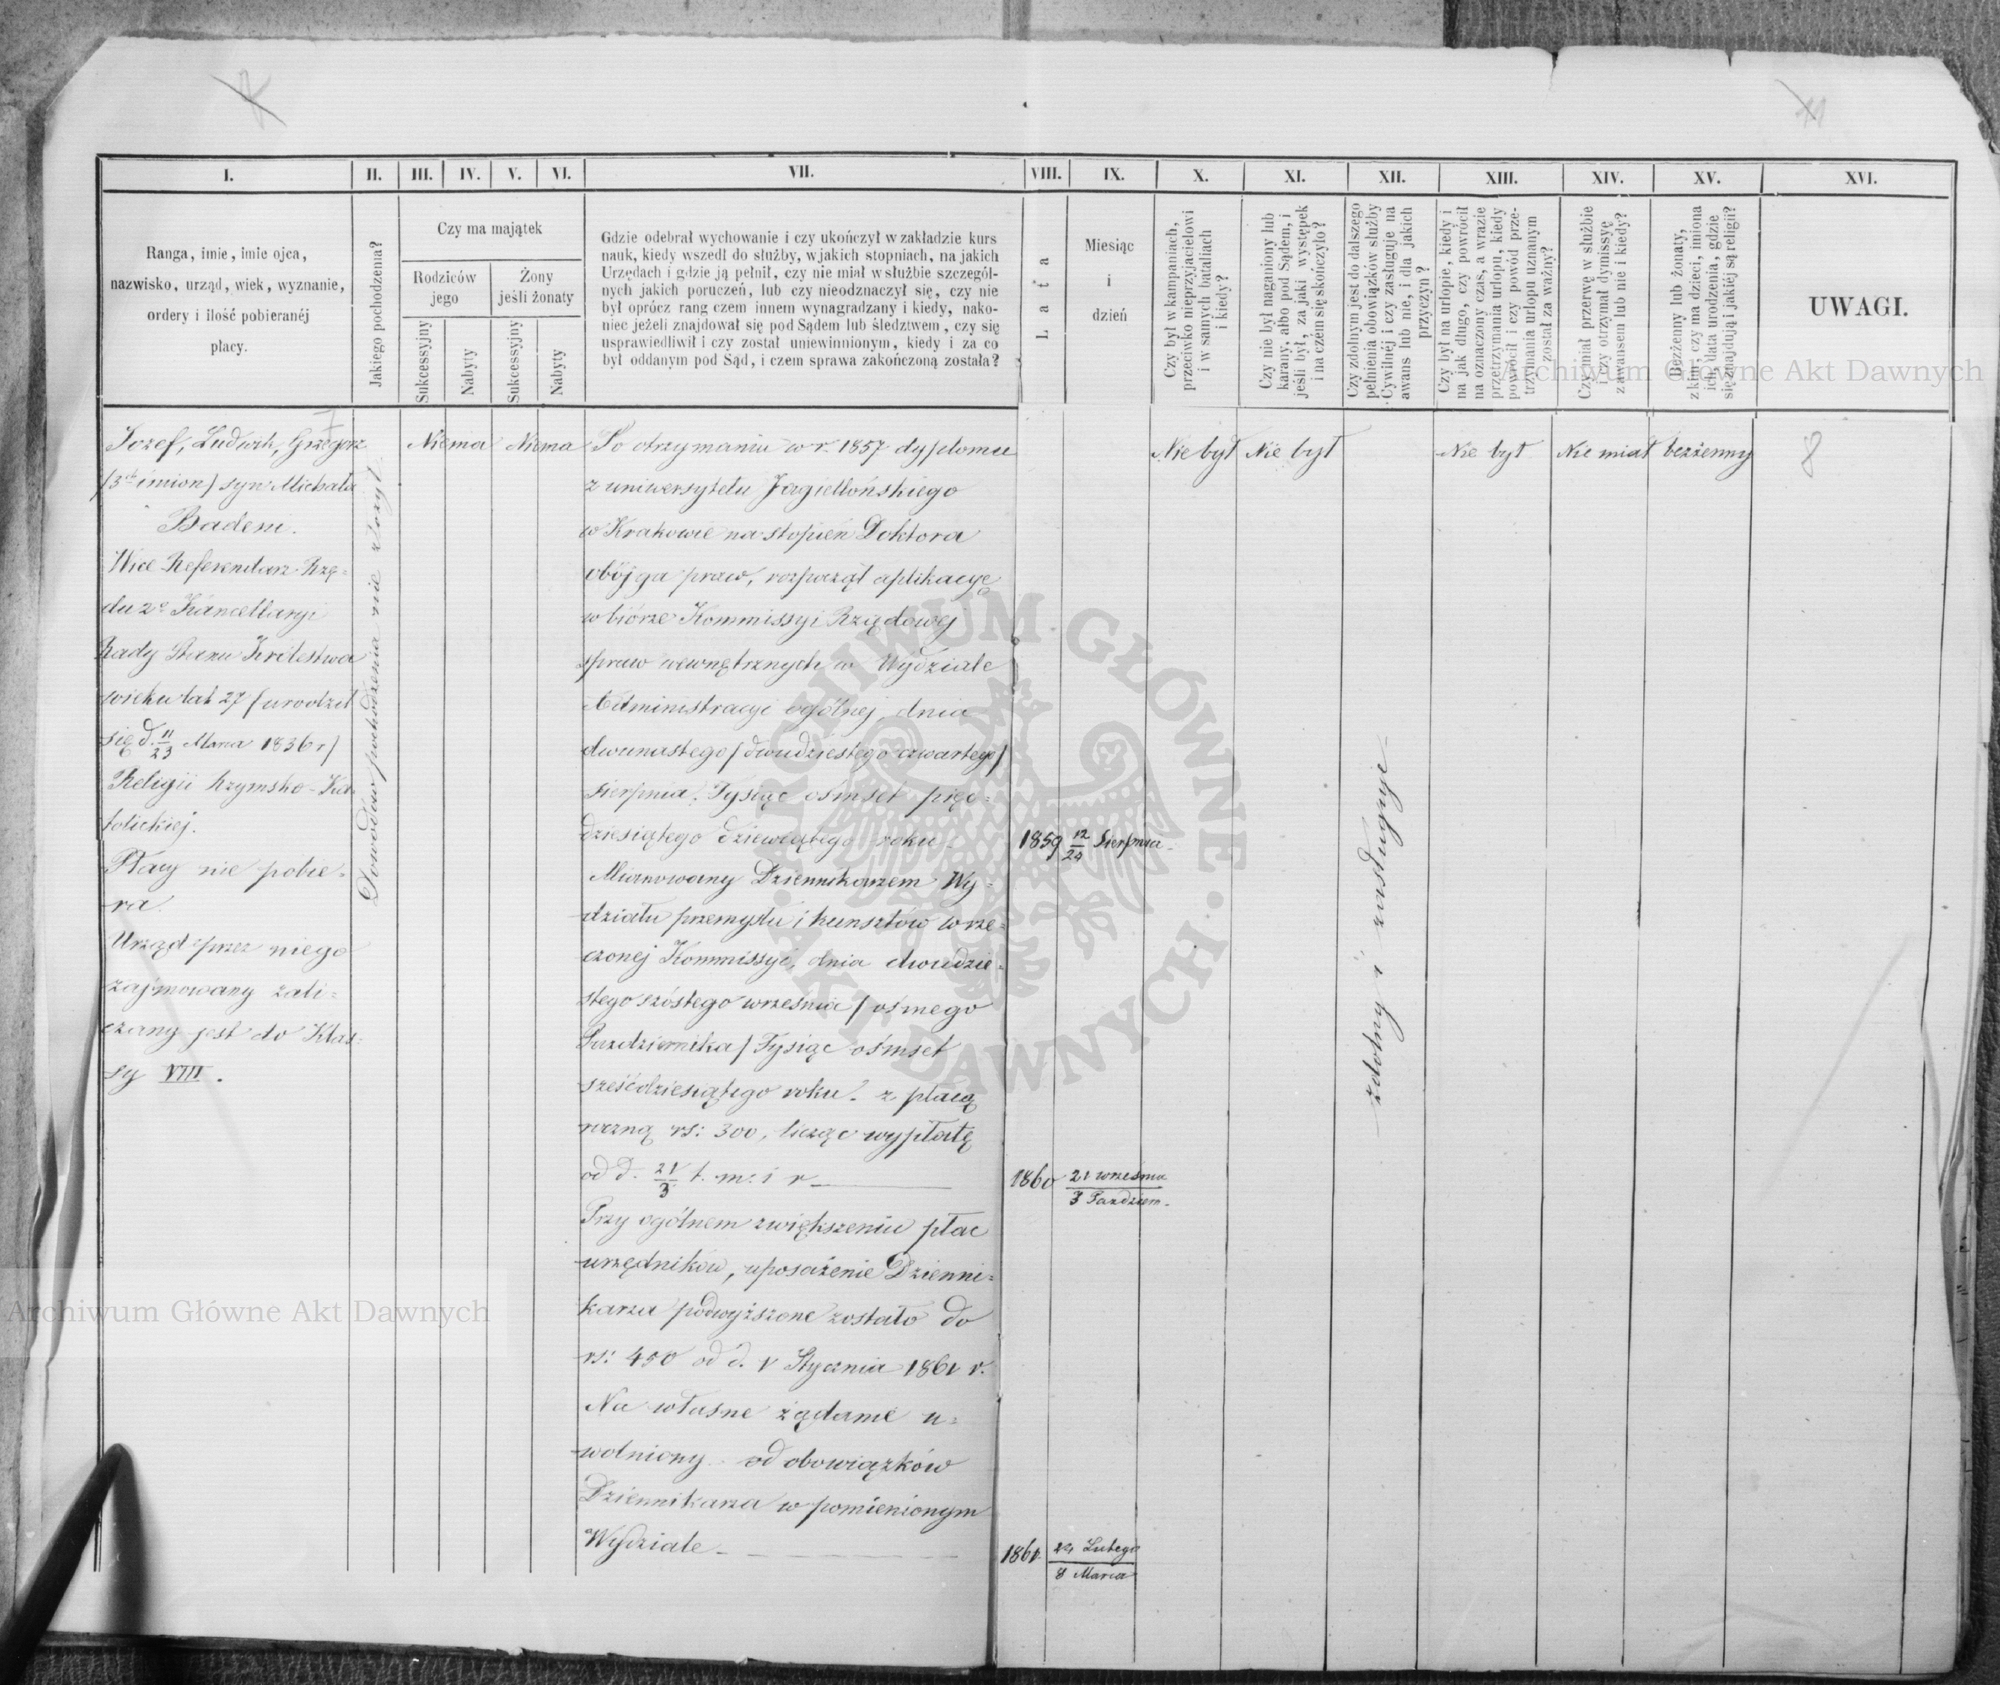 I.
II.
III.
IV.
V.
VI.
VII.
VIII.
IX.
X.
XI.
XII.
XIII.
XIV.
XV.
XVI.
Ranga, imie, imie ojca,
nazwisko, urząd, wiek, wyznanie,
ordery i ilość pobieranéj
płacy.
Jakiego pochodzenia?
Czy ma majątek
Rodziców
jego
Żony
jeśli żonaty
Sukcessyjny
Nabyty
Sukcessyjny
Nabyty
Gdzie odebrał wychowanie i czy ukończył w zakładzie kurs
nauk, kiedy wszedł do służby, w jakich stopniach, na jakich
Urzędach i gdzie ją pełnił, czy nie miał w służbie szczegól-
nych jakich poruczeń, lub czy nieodznaczył się, czy nie
był oprócz rang czem innem wynagradzany i kiedy, nako-
niec jeżeli znajdował się pod Sądem lub śledztwem, czy się
usprawiedliwił i czy został uniewinnionym, kiedy i za co
był oddanym pod Sąd, i czem sprawa zakończoną została?
Lata
Miesiąc
i
dzień
Czy był w kampaniach,
przeciwko nieprzyjacielowi
i w samych bataliach
i kiedy?
Czy nie był naganiony lub
karany, albo pod Sądem, i
jeśli był, za jaki występek
i na czem się skończyło?
Czy zdolnym jest do dalszego
pełnienia obowiązków służby
Cywilnéj i czy zasługuje na
awans lub nie, i dla jakich
przyczyn?
Czy był na urlopie, kiedy i
na jak długo, czy powrócił
na oznaczony czas, a w razie
przetrzymania urlopu, kiedy
powrócił i czy powód prze-
trzymania urlopu uznanym
został za ważny?
Czy miał przerwę w służbie
i czy otrzymał dymissyę
z awansem lub nie i kiedy?
Bezżenny lub żonaty,
z kim, czy ma dzieci, imiona
ich, data urodzenia, gdzie
się znajdują i jakiéj są religii?
UWAGI.
Józef, Ludwik, Grzegorz
/3ch imion/ syn Michała
Badeni.
Wice Referendarz Rzę-
du 2o Kancellaryi
Rady Stanu Królestwa
wieku lat 27 /urodził
się d. 11/23 Marca 1836 r/
Religii Rzymsko-Ka
tolickiej.
Płacy nie pobie-
ra.
Urząd przez niego
zajmowany zali-
czany jest do Klas-
sy VIII.
Dowodów pochodzenia nie złożył
Niema
Niema
Po otrzymaniu w r. 1857 dyplomu
z uniwersytetu Jagiellońskiego
w Krakowie na stopień Doktora
obójga praw, rozpoczął aplikacyę
w biórze Kommissyi Rządowej
spraw wewnętrznych w Wydziale
Administracyi ogólnej, dnia
dwunastego /dwudziestego czwartego/
Sierpnia Tysiąc ośmset pięć-
dziesiątego dziewiątego roku.
1859 12/24 Sierpnia
Mianowany Dziennikarzem Wy-
działu przemysłu i kunsztów w rze-
czonej Kommissyi, dnia dwudzie-
stego szóstego września /ósmego
Października/ Tysiąc ośmset
sześćdziesiątego roku. z płacą
roczną rs: 300, licząc wypłatę
od d. 21/3 t. m. i r
1860 21 września
3 Październ.
Przy ogólnem zwiększeniu płac
urzędników, uposażenie Dzienni-
karza podwyższone zostało do
rs: 450 od d. 1 Stycznia 1861 r.
Na własne żądanie u-
wolniony od obowiązków
Dziennikarza w pomienionym
Wydziale
1861 24 Lutego
8 Marca
Nie był
Nie był
zdolny i zasługuje
Nie był
Nie miał
bezżenny
8
Archiwum Główne Akt Dawnych
Archiwum Główne Akt Dawnych
ARCHIWUM GŁÓWNE
AKT DAWNYCH